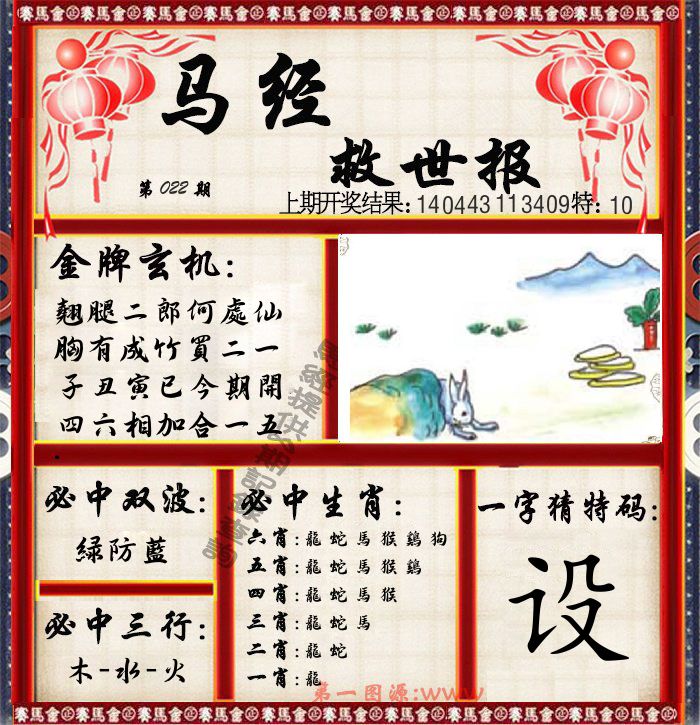 賽馬會
马经
救世报
第 022 期
上期开奖结果：140443113409特：10
金牌玄机：
翹腿二郎何處仙
胸有成竹買二一
子丑寅巳今期開
四六相加合一五
必中双波：
緑防藍
必中三行：
木-水-火
必中生肖：
六肖：龍蛇馬猴鷄狗
五肖：龍蛇馬猴鷄
四肖：龍蛇馬猴
三肖：龍蛇馬
二肖：龍蛇
一肖：龍
一字猜特码：
设
第一图源:www